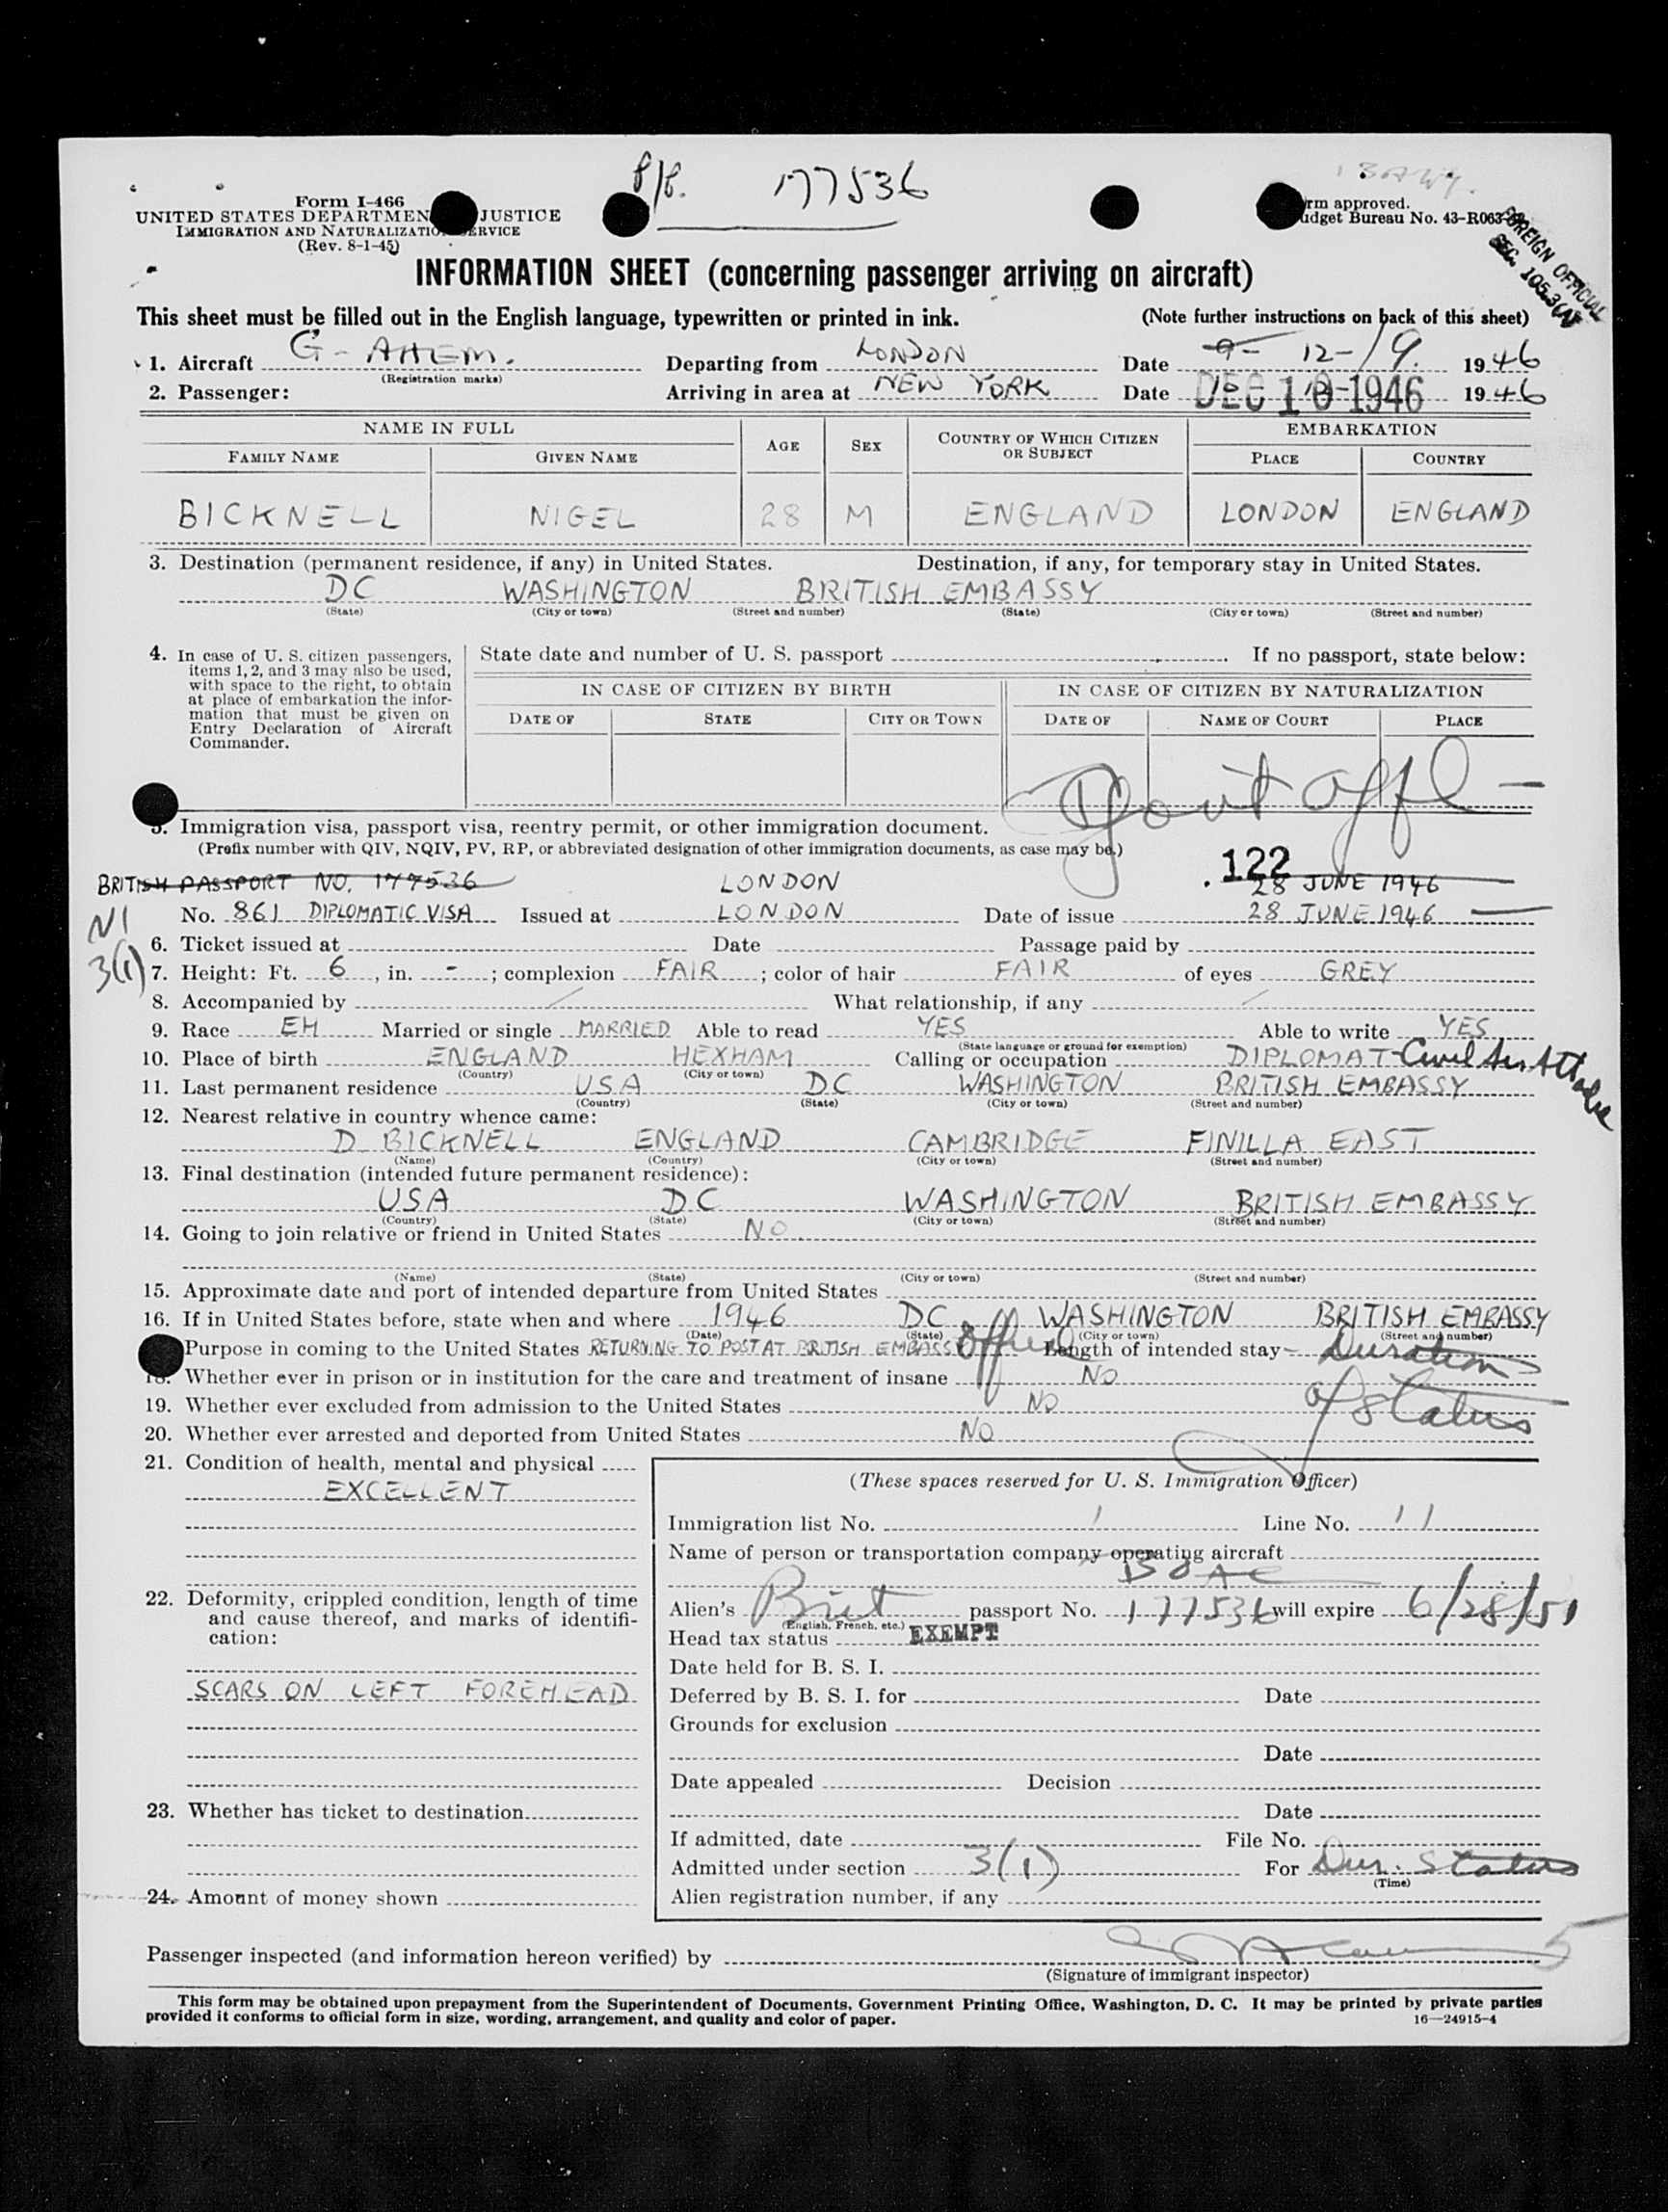 P/P. 177536
Form I-466
UNITED STATES DEPARTMEN JUSTICE
IMMIGRATION AND NATURALIZATIO ERVICE
(Rev. 8-1-45)
rm approved.
udget Bureau No. 43-R063
FOREIGN OFFICIAL
SEC. 105.3(
INFORMATION SHEET (concerning passenger arriving on aircraft)
This sheet must be filled out in the English language, typewritten or printed in ink. (Note further instructions on back of this sheet)
1. Aircraft G-AHEM. Departing from LONDON Date 9- 12-/9. 1946
(Registration marks)
2. Passenger: Arriving in area at NEW YORK Date DEC 10 1946 1946
NAME IN FULL AGE SEX COUNTRY OF WHICH CITIZEN OR SUBJECT EMBARKATION
FAMILY NAME GIVEN NAME PLACE COUNTRY
BICKNELL NIGEL 28 M ENGLAND LONDON ENGLAND
3. Destination (permanent residence, if any) in United States. Destination, if any, for temporary stay in United States.
DC WASHINGTON BRITISH EMBASSY
(State) (City or town) (Street and number) (State) (City or town) (Street and number)
4. In case of U. S. citizen passengers, items 1, 2, and 3 may also be used, with space to the right, to obtain at place of embarkation the information that must be given on Entry Declaration of Aircraft Commander.
State date and number of U. S. passport If no passport, state below:
IN CASE OF CITIZEN BY BIRTH IN CASE OF CITIZEN BY NATURALIZATION
DATE OF STATE CITY OR TOWN DATE OF NAME OF COURT PLACE
Govt Offl -
5. Immigration visa, passport visa, reentry permit, or other immigration document.
(Prefix number with QIV, NQIV, PV, RP, or abbreviated designation of other immigration documents, as case may be.)
122
BRITISH PASSPORT NO. 177536 LONDON 28 JUNE 1946
No. 861 DIPLOMATIC VISA Issued at LONDON Date of issue 28 JUNE 1946
NI
3(1)
6. Ticket issued at Date Passage paid by
7. Height: Ft. 6, in. -; complexion FAIR; color of hair FAIR of eyes GREY
8. Accompanied by What relationship, if any
9. Race EH Married or single MARRIED Able to read YES Able to write YES
(State language or ground for exemption)
10. Place of birth ENGLAND HEXHAM Calling or occupation DIPLOMAT-Civil Air Attache
(Country) (City or town)
11. Last permanent residence USA DC WASHINGTON BRITISH EMBASSY
(Country) (State) (City or town) (Street and number)
12. Nearest relative in country whence came:
D BICKNELL ENGLAND CAMBRIDGE FINILLA EAST
(Name) (Country) (City or town) (Street and number)
13. Final destination (intended future permanent residence):
USA DC WASHINGTON BRITISH EMBASSY
(Country) (State) (City or town) (Street and number)
14. Going to join relative or friend in United States NO.
(Name) (State) (City or town) (Street and number)
15. Approximate date and port of intended departure from United States
16. If in United States before, state when and where 1946 DC WASHINGTON BRITISH EMBASSY
(Date) (State) (City or town) (Street and number)
Purpose in coming to the United States RETURNING TO POST AT BRITISH EMBASSY Official Length of intended stay Duration of status
18. Whether ever in prison or in institution for the care and treatment of insane NO
19. Whether ever excluded from admission to the United States NO
20. Whether ever arrested and deported from United States NO
21. Condition of health, mental and physical
EXCELLENT
22. Deformity, crippled condition, length of time and cause thereof, and marks of identification:
SCARS ON LEFT FOREHEAD
23. Whether has ticket to destination
24. Amount of money shown
(These spaces reserved for U. S. Immigration Officer)
Immigration list No. 1 Line No. 11
Name of person or transportation company operating aircraft
BOAC
Alien's Brit passport No. 177536 will expire 6/28/51
(English, French, etc.)
Head tax status EXEMPT
Date held for B. S. I.
Deferred by B. S. I. for Date
Grounds for exclusion
Date
Date appealed Decision
Date
If admitted, date File No.
Admitted under section 3(1) For Dur. Status
(Time)
Alien registration number, if any
Passenger inspected (and information hereon verified) by
(Signature of immigrant inspector)
5
This form may be obtained upon prepayment from the Superintendent of Documents, Government Printing Office, Washington, D. C. It may be printed by private parties
provided it conforms to official form in size, wording, arrangement, and quality and color of paper. 16—24915-4